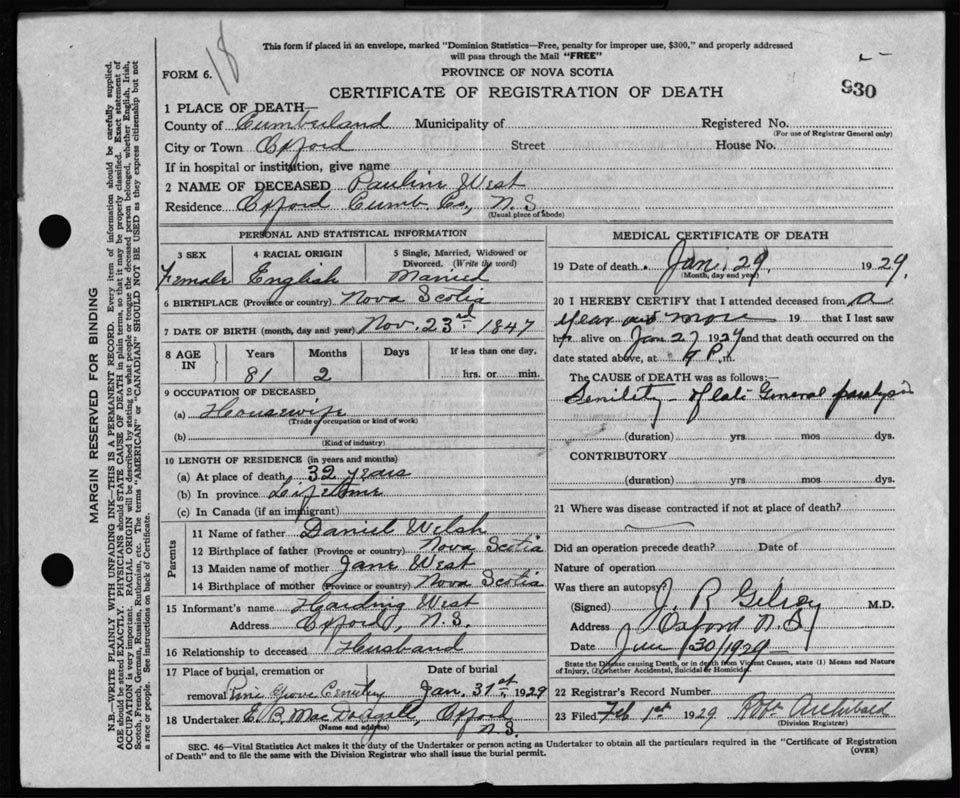 18
This form if placed in an envelope, marked "Dominion Statistics—Free, penalty for improper use, $300," and properly addressed
will pass through the Mail "FREE"
FORM 6.
PROVINCE OF NOVA SCOTIA
CERTIFICATE OF REGISTRATION OF DEATH
930
1 PLACE OF DEATH—
County of Cumberland Municipality of Registered No.
(For use of Registrar General only)
City or Town Oxford Street House No.
If in hospital or institution, give name
2 NAME OF DECEASED Pauline West
Residence Oxford Cumb. Co, N.S.
(Usual place of abode)
PERSONAL AND STATISTICAL INFORMATION
3 SEX 4 RACIAL ORIGIN 5 Single, Married, Widowed or
Divorced. (Write the word)
Female English Married
6 BIRTHPLACE (Province or country) Nova Scotia
7 DATE OF BIRTH (month, day and year) Nov. 23rd 1847
8 AGE IN Years Months Days If less than one day,
81 2 hrs. or min.
9 OCCUPATION OF DECEASED
(a) Housewife
(Trade occupation or kind of work)
(b)
(Kind of industry)
10 LENGTH OF RESIDENCE (in years and months)
(a) At place of death 32 years
(b) In province Lifetime
(c) In Canada (if an immigrant)
Parents
11 Name of father Daniel Welsh
12 Birthplace of father (Province or country) Nova Scotia
13 Maiden name of mother Jane West
14 Birthplace of mother (Province or country) Nova Scotia
15 Informant's name Harding West
Address Oxford, N.S.
16 Relationship to deceased Husband
17 Place of burial, cremation or Date of burial
removal Pine Grove Cemetery Jan. 31st 1929
18 Undertaker E. B. Oxford
(Name and address) N.S.
MEDICAL CERTIFICATE OF DEATH
19 Date of death Jan. 29, 1929,
(Month, day and year)
20 I HEREBY CERTIFY that I attended deceased from a
year and more 19 that I last saw
her alive on Jan 27 1929 and that death occurred on the
date stated above, at P.m.
The CAUSE of DEATH was as follows:
Senility — of late General paralysis
(duration) yrs mos dys.
CONTRIBUTORY
(duration) yrs. mos dys.
21 Where was disease contracted if not at place of death?
Did an operation precede death? Date of
Nature of operation
Was there an autopsy
(Signed) J. R. Gilroy M.D.
Address Oxford N.S.
Date 30/1929
State the Disease causing Death, or in death from Violent Causes, state (1) Means and Nature
of Injury, (2) whether Accidental, Suicidal or Homicidal.
22 Registrar's Record Number
23 Filed Feb 1st 1929 Archibald
(Division Registrar)
SEC. 46—Vital Statistics Act makes it the duty of the Undertaker or person acting as Undertaker to obtain all the particulars required in the "Certificate of Registration
of Death" and to file the same with the Division Registrar who shall issue the burial permit.
(OVER)
MARGIN RESERVED FOR BINDING
N.B.—WRITE PLAINLY WITH UNFADING INK—THIS IS A PERMANENT RECORD. Every item of information should be carefully supplied.
AGE should be stated EXACTLY. PHYSICIANS should STATE CAUSE OF DEATH in plain terms, so that it may be properly classified. Exact statement of
OCCUPATION is very important. RACIAL ORIGIN will be described by stating to what people or tongue the deceased person belonged, whether English, Irish,
Scotch, French, German, Russian, Ruthenian, etc. The terms "AMERICAN" or "CANADIAN" SHOULD NOT BE USED as they express citizenship but not
a race or people. See instructions on back of Certificate.